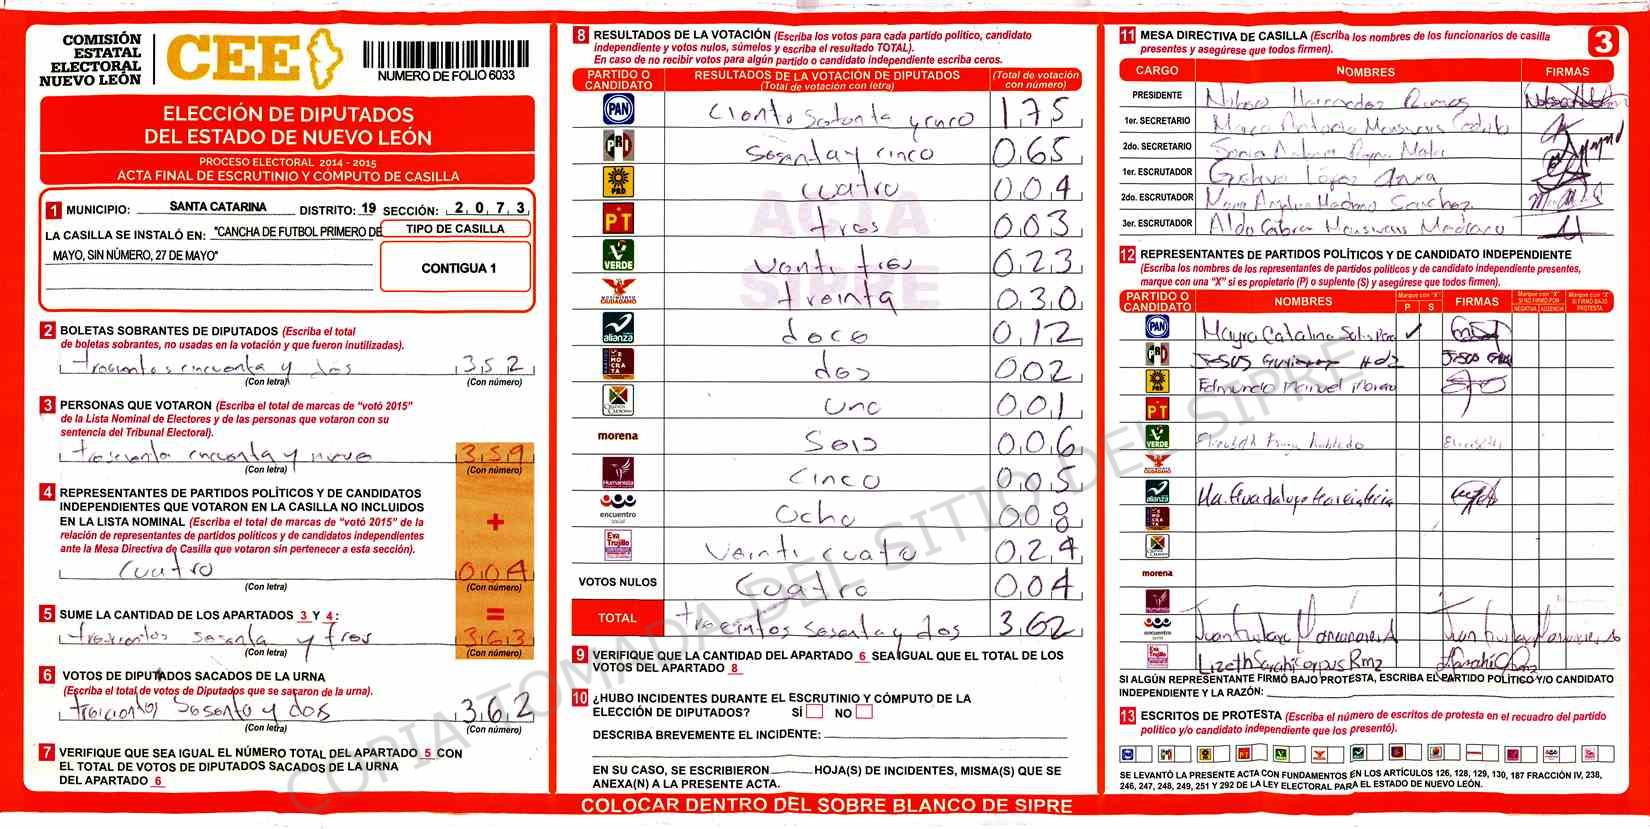 COMISIÓN
ESTATAL
ELECTORAL
NUEVO LEÓN
CEE
NUMERO DE FOLIO 6033
ELECCIÓN DE DIPUTADOS
DEL ESTADO DE NUEVO LEÓN
PROCESO ELECTORAL 2014 - 2015
ACTA FINAL DE ESCRUTINIO Y CÓMPUTO DE CASILLA
1 MUNICIPIO: SANTA CATARINA DISTRITO: 19 SECCIÓN: 2,0,7,3
LA CASILLA SE INSTALÓ EN: "CANCHA DE FUTBOL PRIMERO DE
TIPO DE CASILLA
MAYO, SIN NÚMERO, 27 DE MAYO"
CONTIGUA 1
2 BOLETAS SOBRANTES DE DIPUTADOS (Escriba el total
de boletas sobrantes, no usadas en la votación y que fueron inutilizadas).
trescientos cincuenta y dos 3,5,2
(Con letra) (Con número)
3 PERSONAS QUE VOTARON (Escriba el total de marcas de "votó 2015"
de la Lista Nominal de Electores y de las personas que votaron con su
sentencia del Tribunal Electoral).
cincuenta y nueve 3,5,9
(Con letra) (Con número)
4 REPRESENTANTES DE PARTIDOS POLÍTICOS Y DE CANDIDATOS
INDEPENDIENTES QUE VOTARON EN LA CASILLA NO INCLUIDOS
EN LA LISTA NOMINAL (Escriba el total de marcas de "votó 2015" de la
relación de representantes de partidos políticos y de candidatos independientes
ante la Mesa Directiva de Casilla que votaron sin pertenecer a esta sección).
+
Cuatro 0,0,4
(Con letra) (Con número)
=
5 SUME LA CANTIDAD DE LOS APARTADOS 3 Y 4:
sesenta y tres 3,6,3
(Con letra) (Con número)
6 VOTOS DE DIPUTADOS SACADOS DE LA URNA
(Escriba el total de votos de Diputados que se sacaron de la urna).
sesenta y dos 3,6,2
(Con letra) (Con número)
7 VERIFIQUE QUE SEA IGUAL EL NÚMERO TOTAL DEL APARTADO 5 CON
EL TOTAL DE VOTOS DE DIPUTADOS SACADOS DE LA URNA
DEL APARTADO 6
8 RESULTADOS DE LA VOTACIÓN (Escriba los votos para cada partido político, candidato
independiente y votos nulos, súmelos y escriba el resultado TOTAL).
En caso de no recibir votos para algún partido o candidato independiente escriba ceros.
PARTIDO O CANDIDATO
RESULTADOS DE LA VOTACIÓN DE DIPUTADOS
(Total de votación con letra)
(Total de votación con número)
PAN Ciento setenta y cinco 1,75
PRI sesenta y cinco 0,65
PRD cuatro 0,0,4
PT tres 0,03
VERDE veinti tres 0,2,3
MOVIMIENTO CIUDADANO treinta 0,3,0
alianza doce 0,12
DEMOCRATA dos 0,02
uno 0,0,1
morena Seis 0,0,6
Humanista cinco 0,0,5
encuentro social ocho 0,0,8
Eva Trujillo Veinti cuatro 0,2,4
VOTOS NULOS Cuatro 0,04
TOTAL sesenta y dos 3,62
ACTA
SIPRE
9 VERIFIQUE QUE LA CANTIDAD DEL APARTADO 6 SEA IGUAL QUE EL TOTAL DE LOS
VOTOS DEL APARTADO 8
10 ¿HUBO INCIDENTES DURANTE EL ESCRUTINIO Y CÓMPUTO DE LA
ELECCIÓN DE DIPUTADOS? SÍ NO
DESCRIBA BREVEMENTE EL INCIDENTE:
EN SU CASO, SE ESCRIBIERON HOJA(S) DE INCIDENTES, MISMA(S) QUE SE
ANEXA(N) A LA PRESENTE ACTA.
COLOCAR DENTRO DEL SOBRE BLANCO DE SIPRE
COPIA TOMADA DEL SITIO DEL SIPRE
11 MESA DIRECTIVA DE CASILLA (Escriba los nombres de los funcionarios de casilla
presentes y asegúrese que todos firmen).
3
CARGO NOMBRES FIRMAS
PRESIDENTE
1er. SECRETARIO Antonio
2do. SECRETARIO Sonia
1er. ESCRUTADOR Gustavo López
2do. ESCRUTADOR Sanchez
3er. ESCRUTADOR Aldo
12 REPRESENTANTES DE PARTIDOS POLÍTICOS Y DE CANDIDATO INDEPENDIENTE
(Escriba los nombres de los representantes de partidos políticos y de candidato independiente presentes,
marque con una "X" si es propietario (P) o suplente (S) y asegúrese que todos firmen).
PARTIDO O CANDIDATO
NOMBRES
Marque con "X"
P S
FIRMAS
Marque con "X" SI NO FIRMÓ POR
NEGATIVA AUSENCIA
Marque con "X" SI FIRMÓ BAJO PROTESTA
PAN Mayra Catalina
PRI Jesus Hdz
PRD Edmundo Manuel
PT
VERDE Elizabeth
alianza Ma. Guadalupe
morena
encuentro social Juan
Eva Trujillo Lizeth Sarahi Corpus Rmz
SI ALGÚN REPRESENTANTE FIRMÓ BAJO PROTESTA, ESCRIBA EL PARTIDO POLÍTICO Y/O CANDIDATO
INDEPENDIENTE Y LA RAZÓN:
13 ESCRITOS DE PROTESTA (Escriba el número de escritos de protesta en el recuadro del partido
político y/o candidato independiente que los presentó).
SE LEVANTÓ LA PRESENTE ACTA CON FUNDAMENTOS EN LOS ARTÍCULOS 126, 128, 129, 130, 187 FRACCIÓN IV, 238,
246, 247, 248, 249, 251 Y 292 DE LA LEY ELECTORAL PARA EL ESTADO DE NUEVO LEÓN.